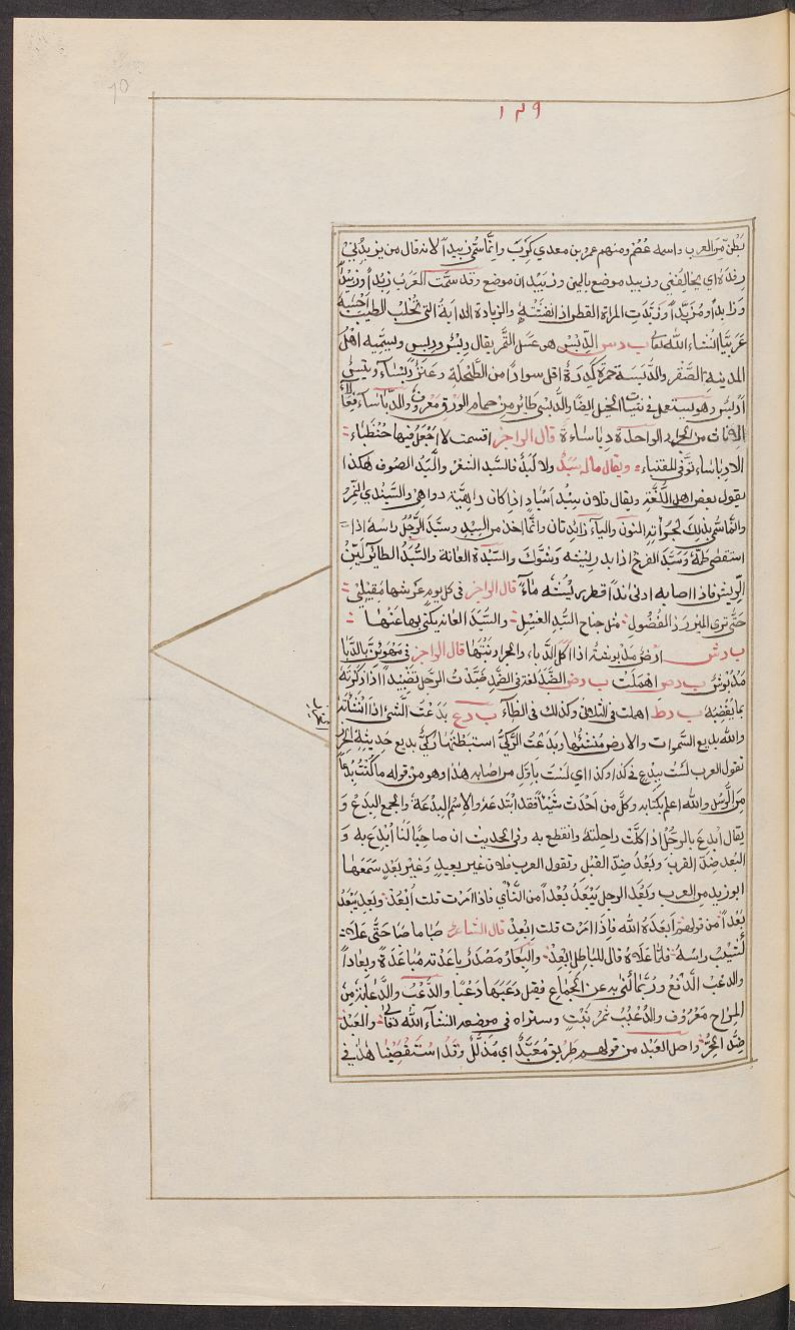 ١٢٩
بَطْنٌ مِنَ العرب واسمه عُصْم ومنهم عمرو بن معدي كَرِبَ وانّما سُمّى زبيداً لانه قال من يزبدُنِيْ
رفدَه اى يحالِفُنى وزبيد موضع باليمن وزَبيدان موضع وقد سمّت العَرَبُ زبداً وزبيداً
وزابداً ومُزَبِّداً وزَبَّدَتِ المراة القطن اذا نفشَتْهُ والزبادة الدابة التى تُحْلَبُ الطيب اَحسِبُهُ
عَرَبيّا انشاء الله تعا ب د س الدِّبْسُ هو عسل التمر يقال دِبْسٌ ودِبِسٌ ويسمّيه اهلُ
المدينة الصَّقر والدُّبسة حمرة كَدِرَةٌ اقل سوادًا من الطُّحْلَةِ وعنزٌ دَبْسَآءُ وتيسٌ
اَدْبَسُ وهو يستعمل فى شيات الخيل ايضًا والدُّبْسى طائر من حمام الورق معروف والدَّباساء فَعَالاءُ
الاناث من الجراد الواحدة دباساءة قال الراجز اقسمت لا اجعل فيها حُنْظباءَ
الا دباساء توَفّى المقتباء ويقال ماله سَبَدٌ ولا لَبَدٌ فالسَّبَد الشعر واللَّبَد الصوف هكذا
يقول بعض اهل اللُّغة ويقال فلان سِبْدُ اَسْبَادٍ اذا كان داهيةَ دواهى والسَّبَنْدى النَّمِرُ
وانّما سُمّى بذلِكَ لجرأته النون واليآء زايدتان وانّما اخذ من السِبْدِ وسبّدَ الرَّجُلُ راسهُ اذا
استقصى طَمَّهُ وسَبَّدَ الفرخ اذا بدا ريشه وشوّك والسَّبْدة العانة والسُّبَدُ الطائر ليّنُ
الرِّيش فاذا اصابه ادنى نداً قطر ريشُه ماءً قال الراجز فى كل يوم عرشها مَقِيْلىْ
حتّى ترى المئزر ذا الفُضُول مثل جناح السُّبَدِ الغسيل والسَّبَدُ العانه يكنّى بها عنها
ب د ش ارضٌ مدبوشة اذا اكل الدَّباء والجراد نَبْتَها قال الراجز فى مُهْوَئِنٍّ بالدَّبَا
مَدْبُوْشِ ب د ص اهملت ب د ض الضَّبَد لغة فى الضَّمد ضبّدت الرّجل تضْبيداً اذا ذكرته
بما يُغْضِبُهُ ب د ط اهملت فى الثلاثى وكذلك فى الظاء ب د ع بدَعْتُ الشَّئَ اذا انشأتَهُ
والله بديع السَّموات والارض مُنْشِئُها وبَدَعْتُ الرَّكىَّ استنبطتها ركىٌّ بديع حديثة الحَفْرِ
تقول العرب لستُ ببِدْعٍ فى كذا وكذا اى لستَ بأوَّلِ من اصابه هذا وهو من قوله ما كنتُ بِدْعاً
مِنَ الرُّسُلِ والله اعلم بكتابه وكلّ من احْدَثَ شَيْئاً فقد ابْتَدعهُ والاِسْم البِدْعَة والجمع البِدَعُ وَ
يقال اُبْدِعَ بالرجُلِ اذا كلَّتْ راحلته وانقطع به وفى الحديث ان صاحبًا لَنَا اُبْدِعَ به وَ
البُعد ضِدّ القربَ وبَعْدُ ضِدّ القَبْلِ وتقول العرب فلان غير بعيدٍ وغير بَعَدٍ سَمِعَها
ابو زيد من العرب وبَعُد الرجل يَبْعُدُ بُعْداً من النَّأى فاذا امرْت قلت اُبْعُدْ وبَعِدَ يَبْعَدُ
بَعَداً من قولهم اَبْعَدَهُ الله فاِذا امرت قلت اِبْعَدْ قال الشاعر صَبا ما صَبا حَتّى عَلَا
الشَّيْبُ راسَهُ فلمّا علَاهُ قال للباطل اِبْعَدْ والبِعَادُ مَصْدَرُ باعَدْته مُبَاعَدَةً وبِعَاداً
والدعْبُ الدَّفْعُ ورُبّما كُنى به عن الجماع فقيل دَعَبَها دَعْبًا والدَّعْبُ والدُّعابة مِنَ
المِزاح مَعْرُوف والدُّعْبُبُ ثمر نَبْتٍ وستراه فى موضعه انشآء الله تعا والعَبْدُ
ضِدُّ الحُرّ واصل العَبْد من قولهم طريق مُعَبَّدٌ اى مُذَلَّلٌ وقَد اسْتَقْصَيْنا هذا فى